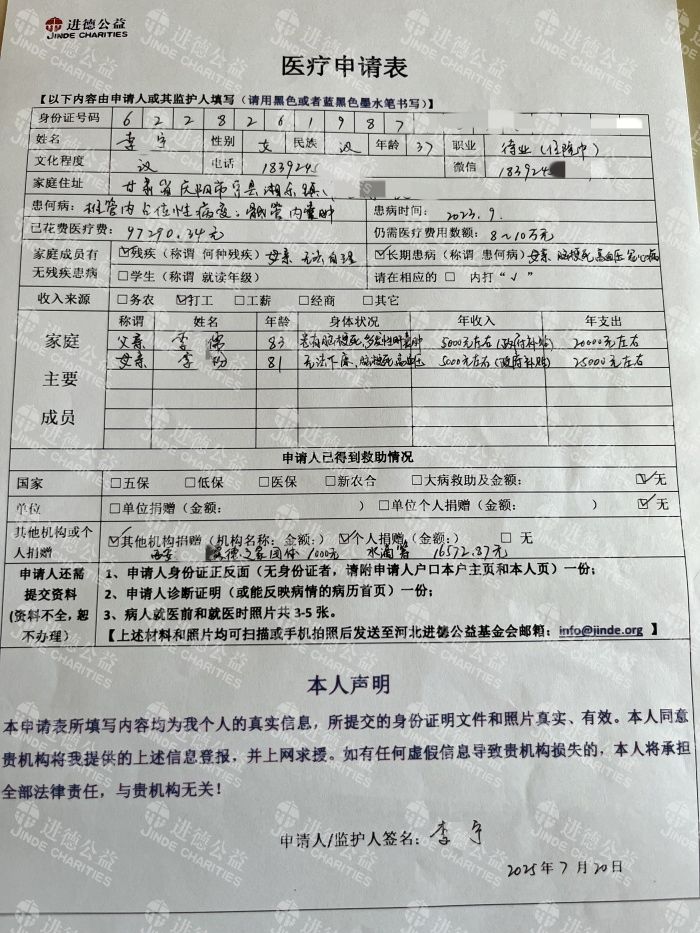 进德公益
JINDE CHARITIES
医疗申请表
【以下内容由申请人或其监护人填写（请用黑色或者蓝黑色墨水笔书写）】
身份证号码 6 2 2 8 2 6 1 9 8 7
姓名 李宁 性别 女 民族 汉 年龄 37 职业 待业（住院中）
文化程度 汉 电话 183924 微信 183924
家庭住址 甘肃省庆阳市宁县湘乐镇
患何病：椎管内占位性病变：骶管内囊肿 患病时间：2023.9.
已花费医疗费：97290.34元 仍需医疗费用数额：8~10万元
家庭成员有无残疾患病 ☑残疾（称谓 何种残疾）母亲 无法自理 ☑长期患病（称谓 患何病）母亲 脑梗死高血压冠心病
□学生（称谓 就读年级） 请在相应的 □ 内打“√”
收入来源 □务农 ☑打工 □工薪 □经商 □其它
家庭主要成员 称谓 姓名 年龄 身体状况 年收入 年支出
父亲 李儒 83 患有脑梗死，多发性肿囊肿 5000元左右（政府补贴） 20000元左右
母亲 李 81 无法下床、脑梗死高血压 5000元左右（政府补贴） 25000元左右
申请人已得到救助情况
国家 □五保 □低保 □医保 □新农合 □大病救助及金额： ☑无
单位 □单位捐赠（金额： ） □单位个人捐赠（金额： ） ☑无
其他机构或个人捐赠 ☑其他机构捐赠（机构名称：金额：） ☑个人捐赠（金额：） □ 无
西安 之家团体 1000元 水滴筹 16572.87元
申请人还需提交资料（资料不全，恕不办理）
1、申请人身份证正反面（无身份证者，请附申请人户口本户主页和本人页）一份；
2、申请人诊断证明（或能反映病情的病历首页）一份；
3、病人就医前和就医时照片共 3-5 张。
【上述材料和照片均可扫描或手机拍照后发送至河北进德公益基金会邮箱：info@jinde.org 】
本人声明
本申请表所填写内容均为我个人的真实信息，所提交的身份证明文件和照片真实、有效。本人同意
贵机构将我提供的上述信息登报，并上网求援。如有任何虚假信息导致贵机构损失的，本人将承担
全部法律责任，与贵机构无关！
申请人/监护人签名：李宁
2025年7月20日